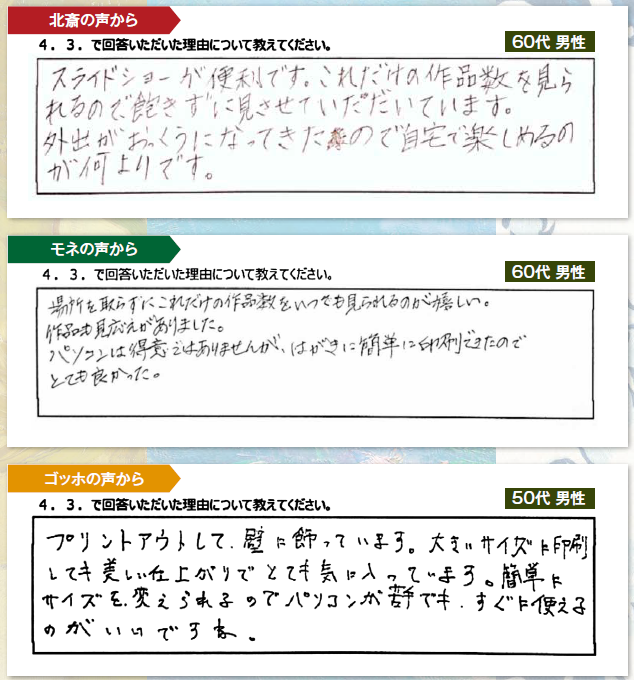 北斎の声から
４．３．で回答いただいた理由について教えてください。
60代 男性
スライドショーが便利です。これだけの作品数を見ら
れるので飽きずに見させていただいています。
外出がおっくうになってきたので自宅で楽しめるの
が何よりです。
モネの声から
４．３．で回答いただいた理由について教えてください。
60代 男性
場所を取らずにこれだけの作品数をいつでも見られるのが嬉しい。
作品も見応えがありました。
パソコンは得意ではありませんが、はがきに簡単に印刷できたので
とても良かった。
ゴッホの声から
４．３．で回答いただいた理由について教えてください。
50代 男性
プリントアウトして、壁に飾っています。大きいサイズに印刷
しても美しい仕上がりでとても気に入っています。簡単に
サイズを変えられるのでパソコンが苦手でも、すぐに使える
のがいいですね。